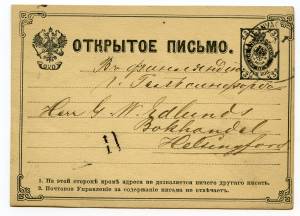 ОТКРЫТОЕ ПИСЬМО.
Въ Финляндію
г. Гельсингфорсъ
Herr G. W. Edlunds
Bokhandel
Helsingfors
1. На этой сторонѣ кромѣ адреса не дозволяется ничего другаго писать.
2. Почтовое Управленіе за содержаніе письма не отвѣчаетъ.